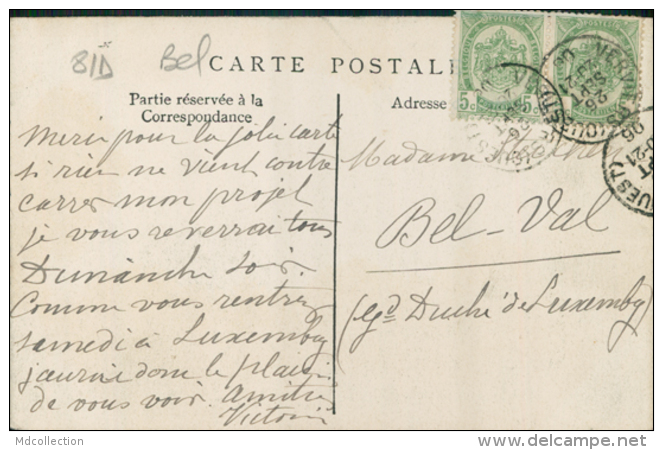 81D Bel
CARTE POSTALE
Partie réservée à la
Correspondance
Adresse
Merci pour la jolie carte
si rien ne vient contre
carrer mon projet
je vous reverrai tous
Dimanche soir.
Comme vous rentrez
samedi à Luxembg
j'aurai donc le plaisir
de vous voir. Amitiés
Victorine
Madame
Bel-Val
(Gd Duché de Luxembg)
5c 5c
VERVIERS
OUEST
Mdcollection
delcampe.net